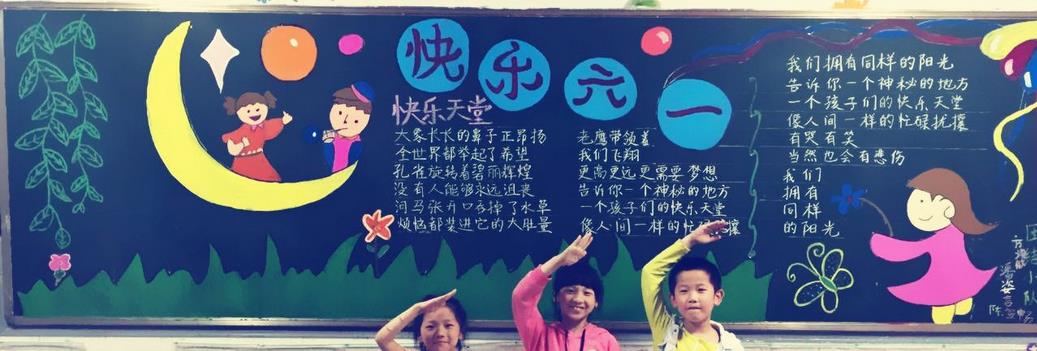 快乐六一
快乐天堂
大象长长的鼻子正昂扬
全世界都举起了希望
孔雀旋转着碧丽辉煌
没有人能够永远沮丧
河马张开口吞掉了水草
烦恼都装进它的大肚量
老鹰带领着
我们飞翔
更高更远更需要梦想
告诉你一个神秘的地方
一个孩子们的快乐天堂
像人间一样的忙碌扰攘
我们拥有同样的阳光
告诉你一个神秘的地方
一个孩子们的快乐天堂
像人间一样的忙碌扰攘
有哭有笑
当然也会有悲伤
我们
拥有
同样
的阳光